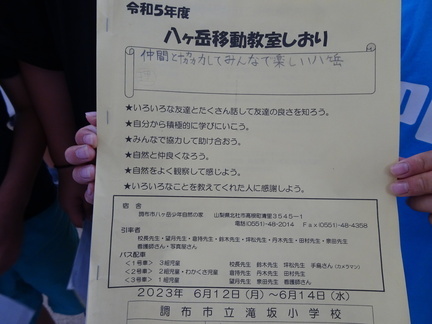 令和5年度
八ヶ岳移動教室しおり
仲間と協力してみんなで楽しい八ヶ岳
★いろいろな友達とたくさん話して友達の良さを知ろう。
★自分から積極的に学びにいこう。
★みんなで協力して助け合おう。
★自然と仲良くなろう。
★自然をよく観察して感じよう。
★いろいろなことを教えてくれた人に感謝しよう。
宿舎
調布市八ヶ岳少年自然の家 山梨県北杜市高根町清里3545-1
電話(0551)-48-2014 Fax(0551)-48-4358
引率者
校長先生・望月先生・首持先生・鈴木先生・坪松先生・丹木先生・田村先生・恵田先生
看護師さん・写真屋さん
バス配車
<1号車> 3組児童 校長先生 鈴木先生 坪松先生 手島さん(カメラマン)
<2号車> 2組児童・わかくさ児童 首持先生 丹木先生 田村先生
<3号車> 1組児童 望月先生 恵田先生 看護師さん
2023年 6月12日(月)~6月14日(水)
調布市立滝坂小学校